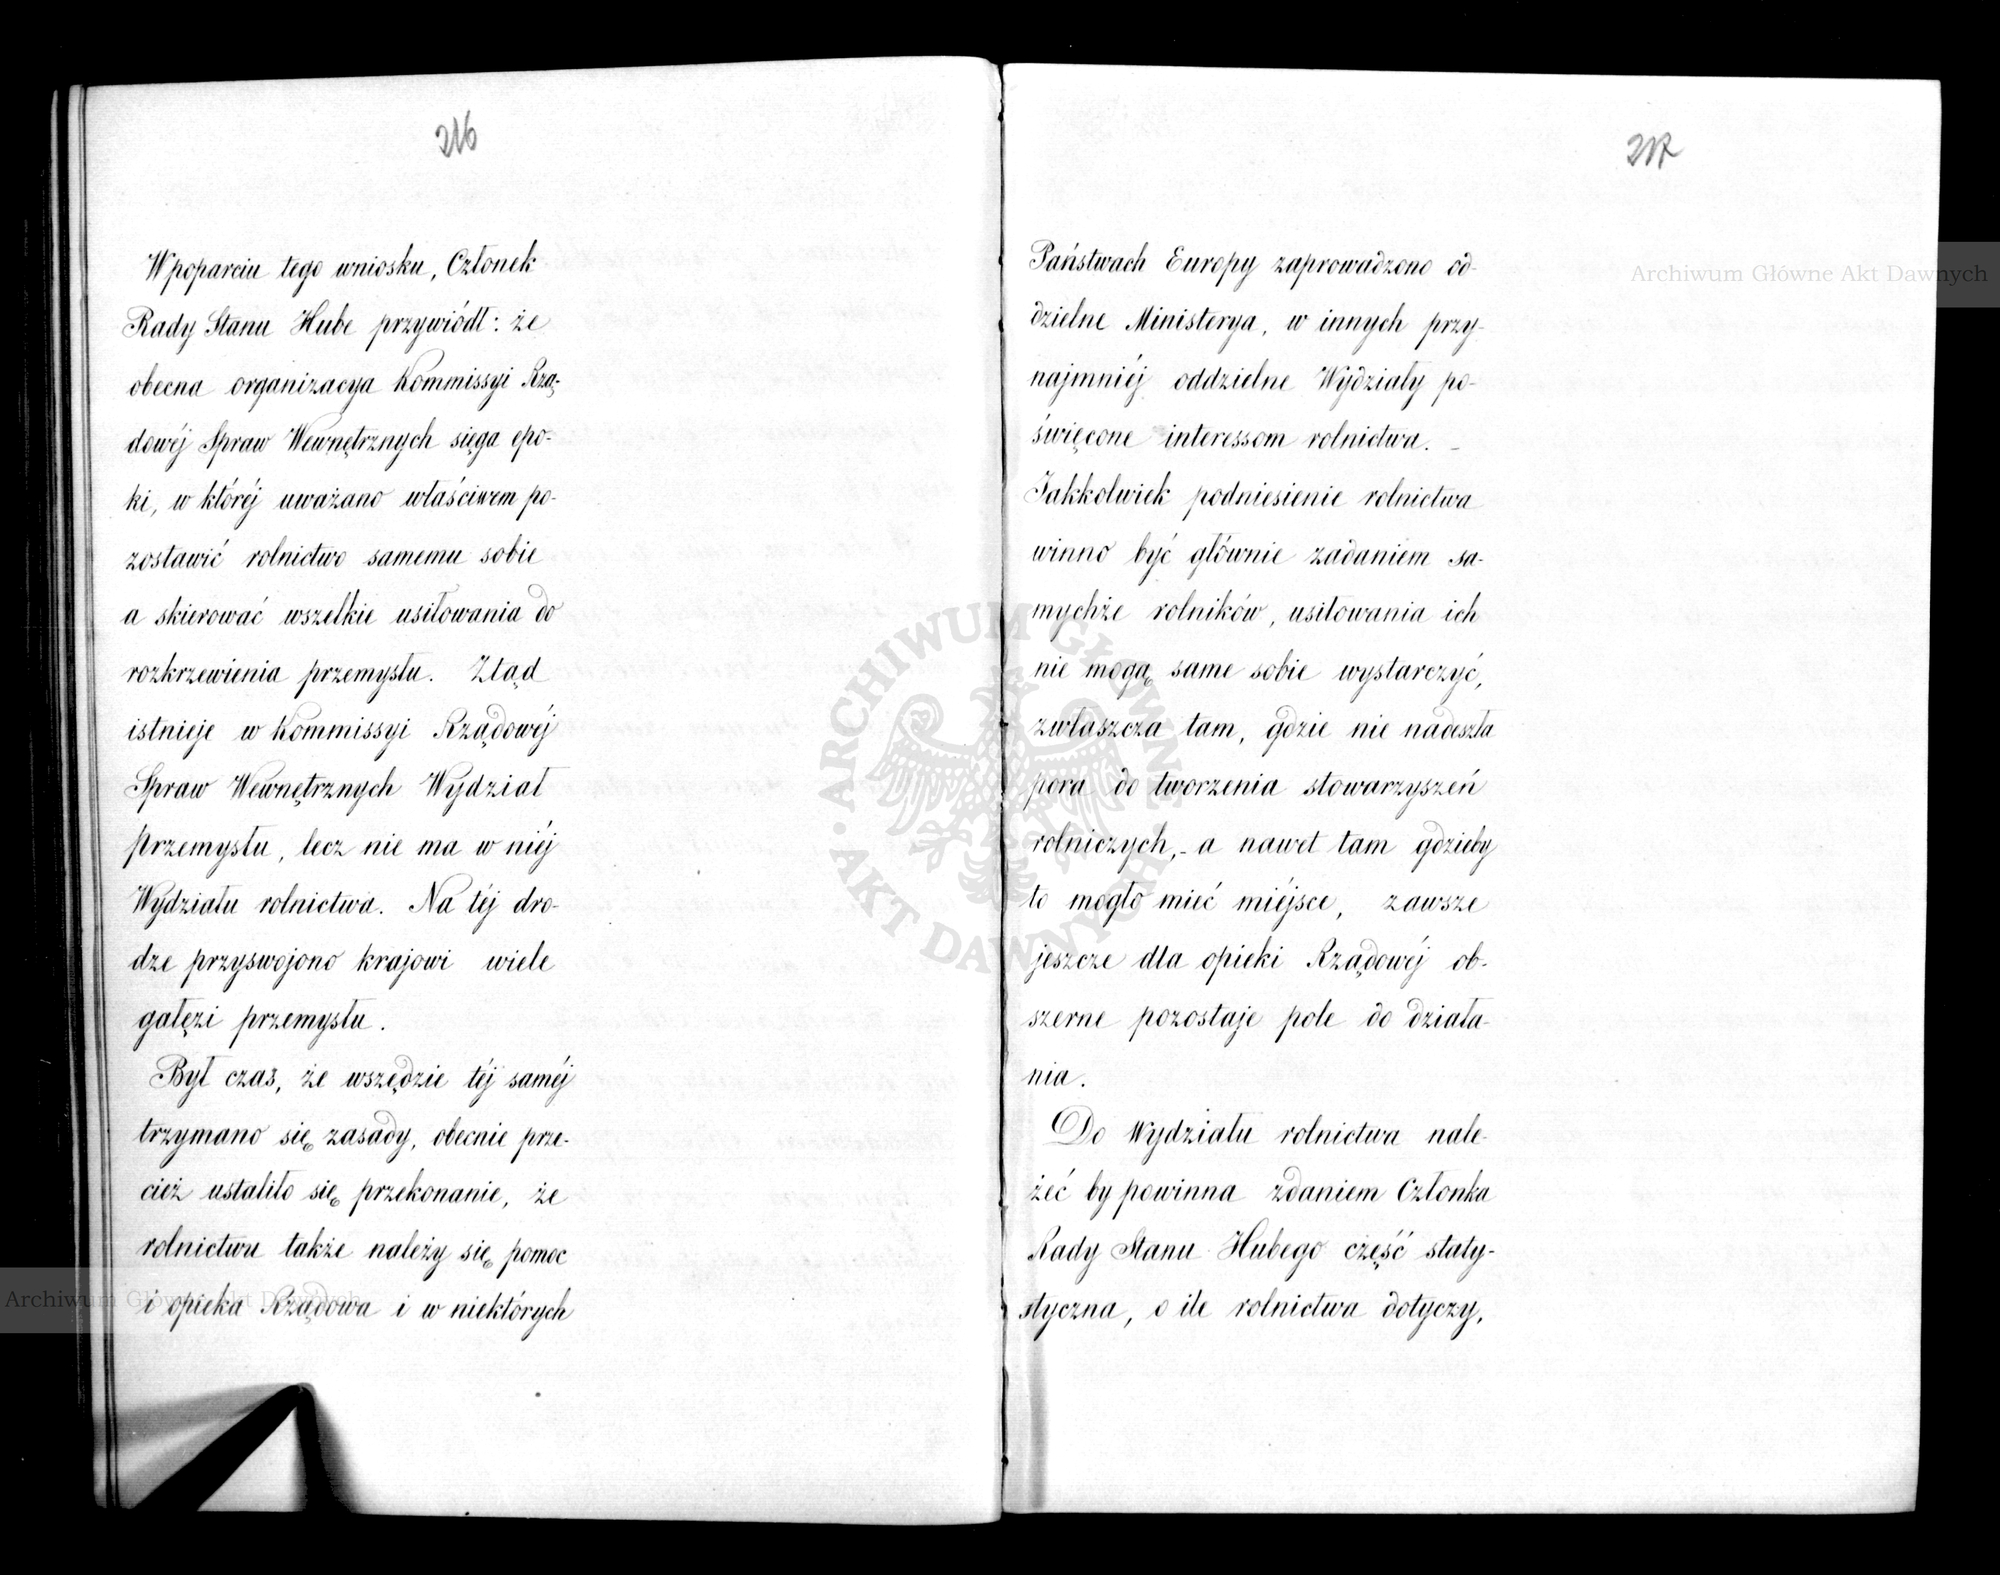 216
W poparciu tego wniosku, Członek
Rady Stanu Hube przywiódł: że
obecna organizacya Kommissyi Rzą-
dowéj Spraw Wewnętrznych sięga epo-
ki, w któréj uważano właściwem po-
zostawić rolnictwo samemu sobie
a skierować wszelkie usiłowania do
rozkrzewienia przemysłu. Ztąd
istnieje w Kommissyi Rządowéj
Spraw Wewnętrznych Wydział
przemysłu, lecz nie ma w niéj
Wydziału rolnictwa. Na téj dro-
dze przyswojono krajowi wiele
gałęzi przemysłu.
Był czas, że wszędzie téj saméj
trzymano się zasady, obecnie prze-
cież ustaliło się przekonanie, że
rolnictwu także należy się pomoc
i opieka Rządowa i w niektórych
217
Państwach Europy zaprowadzono od-
dzielne Ministerya, w innych przy-
najmniéj oddzielne Wydziały po-
święcone interessom rolnictwa. -
Jakkolwiek podniesienie rolnictwa
winno być głównie zadaniem sa-
mychże rolników, usiłowania ich
nie mogą same sobie wystarczyć,
zwłaszcza tam, gdzie nie nadeszła
pora do tworzenia stowarzyszeń
rolniczych, - a nawet tam gdzieby
to mogło mieć miéjsce, zawsze
jeszcze dla opieki Rządowéj ob-
szerne pozostaje pole do działa-
nia.
Do Wydziału rolnictwa nale-
żeć by powinna zdaniem Członka
Rady Stanu Hubego część staty-
styczna, o ile rolnictwa dotyczy,
Archiwum Główne Akt Dawnych
Archiwum Główne Akt Dawnych
ARCHIWUM GŁÓWNE · AKT DAWNYCH ·